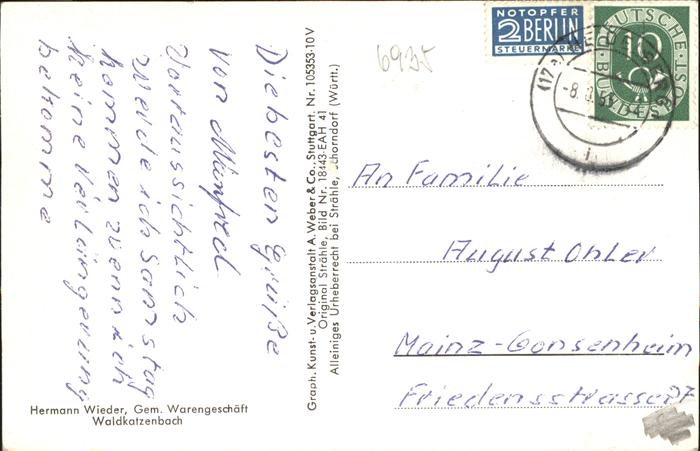 Die besten Grüße
von Manfred
Voraussichtlich
werde ich Samstag
kommen wenn ich
keine Verlängerung
bekomme
Hermann Wieder, Gem. Warengeschäft
Waldkatzenbach
Graph. Kunst- u. Verlagsanstalt A. Weber & Co., Stuttgart. Nr. 105353-10V
Original Strähle, Bild Nr. 18443-EAH 41
Alleiniges Urheberrecht bei Strähle, Schorndorf (Württ.)
6935
NOTOPFER
2 BERLIN
STEUERMARKE
DEUTSCHE
10
BUNDESPOST
(17a)
An Familie
August Ohler
Mainz-Gonsenheim
Friedensstrasse